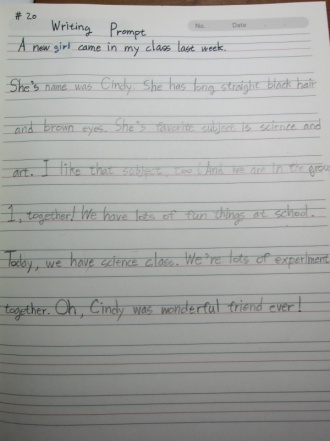 # 20
Writing Prompt
No. Date
A new girl came in my class last week.
She's name was Cindy. She has long straight black hair
and brown eyes. She's favorite subject is science and
art. I like that subject, too! And we are in the group
1, together! We have lots of fun things at school.
Today, we have science class. We're lots of experiment
together. Oh, Cindy was wonderful friend ever!